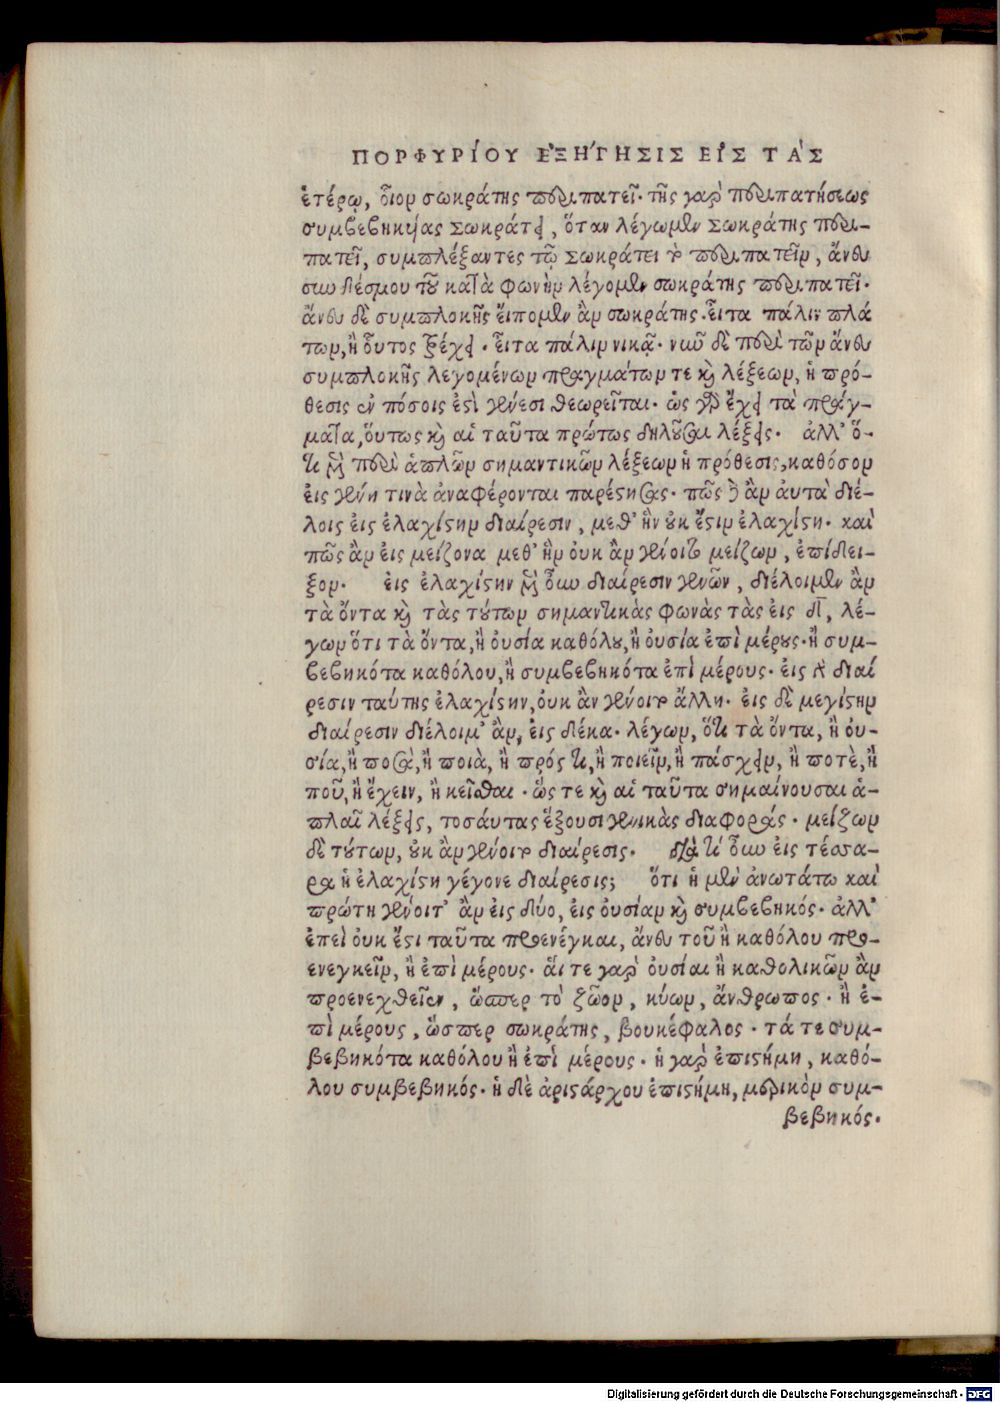 ΠΟΡΦΥΡΙΌΥ ἘΞΗΓΗΣΙΣ ΕΙΣ ΤᾺΣ
ἑτέρῳ, οἷον σωκράτης περιπατεῖ· τῆς γὰρ περιπατήσεως
συμβεβηκυίας Σωκράτει, ὅταν λέγωμεν Σωκράτης περι-
πατεῖ, συμπλέξαντες τῷ Σωκράτει τὸ περιπατεῖν, ἄνευ
συνδέσμου τοῦ κατὰ φωνὴν λέγομεν σωκράτης περιπατεῖ·
ἄνευ δὲ συμπλοκῆς εἴπομεν ἂν σωκράτης· εἶτα πάλιν πλά
των, ἢ οὗτος τρέχει· εἶτα πάλιν νικᾷ· νῦν δὲ περὶ τῶν ἄνευ
συμπλοκῆς λεγομένων πραγμάτων τε καὶ λέξεων, ἡ πρό-
θεσις ἐν πόσοις ἐστὶ γένεσι θεωρεῖται· ὡς γὰρ ἔχει τὰ πράγ-
ματα, οὕτως καὶ αἱ ταῦτα πρώτως δηλοῦσαι λέξεις· ἀλλ' ὅ-
τι μὲν περὶ ἁπλῶν σημαντικῶν λέξεων ἡ πρόθεσις, καθόσον
εἰς γένη τινὰ ἀναφέρονται παρέστησας· πῶς δὲ ἂν αὐτὰ διέ-
λοις εἰς ἐλαχίστην διαίρεσιν, μεθ' ἣν οὐκ ἔστιν ἐλαχίστη· καὶ
πῶς ἂν εἰς μείζονα μεθ' ἣν οὐκ ἂν γένοιτο μείζων, ἐπίδει-
ξον· εἰς ἐλαχίστην μὲν οὖν διαίρεσιν γενῶν, διέλοιμεν ἂν
τὰ ὄντα καὶ τὰς τούτων σημαντικὰς φωνὰς τὰς εἰς δ̅, λέ-
γων ὅτι τὰ ὄντα, ἢ οὐσία καθόλου, ἢ οὐσία ἐπὶ μέρους· ἢ συμ-
βεβηκότα καθόλου, ἢ συμβεβηκότα ἐπὶ μέρους· εἰς δὲ διαί
ρεσιν ταύτης ἐλαχίστην, οὐκ ἂν γένοιτο ἄλλη· εἰς δὲ μεγίστην
διαίρεσιν διέλοιμ' ἂν, εἰς δέκα· λέγων, ὅτι τὰ ὄντα, ἢ οὐ-
σία, ἢ ποσὰ, ἢ ποιὰ, ἢ πρός τι, ἢ ποιεῖν, ἢ πάσχειν, ἢ ποτὲ, ἢ
ποῦ, ἢ ἔχειν, ἢ κεῖσθαι· ὥς τε καὶ αἱ ταῦτα σημαίνουσαι ἁ-
πλαῖ λέξεις, τοσάυτας ἕξουσι γενικὰς διαφοράς· μείζων
δὲ τούτων, οὐκ ἂν γένοιτο διαίρεσις· διὰ τί οὖν εἰς τέσσα-
ρα ἡ ἐλαχίστη γέγονε διαίρεσις; ὅτι ἡ μὲν ἀνωτάτω καὶ
πρώτη γένοιτ' ἂν εἰς δύο, εἰς οὐσίαν καὶ συμβεβηκός· ἀλλ'
ἐπεὶ οὐκ ἔστι ταῦτα προενέγκαι, ἄνευ τοῦ ἢ καθόλου προ-
ενεγκεῖν, ἢ ἐπὶ μέρους· αἵ τε γὰρ οὐσίαι ἢ καθολικῶν ἂν
προενεχθεῖεν, ὥσπερ τὸ ζῶον, κύων, ἄνθρωπος· ἢ ἐ-
πὶ μέρους, ὥσπερ σωκράτης, βουκέφαλος· τά τε συμ-
βεβηκότα καθόλου ἢ ἐπὶ μέρους· ἡ γὰρ ἐπιστήμη, καθό-
λου συμβεβηκός· ἡ δὲ ἀριστάρχου ἐπιστήμη, μερικὸν συμ-
βεβηκός.
Digitalisierung gefördert durch die Deutsche Forschungsgemeinschaft · DFG